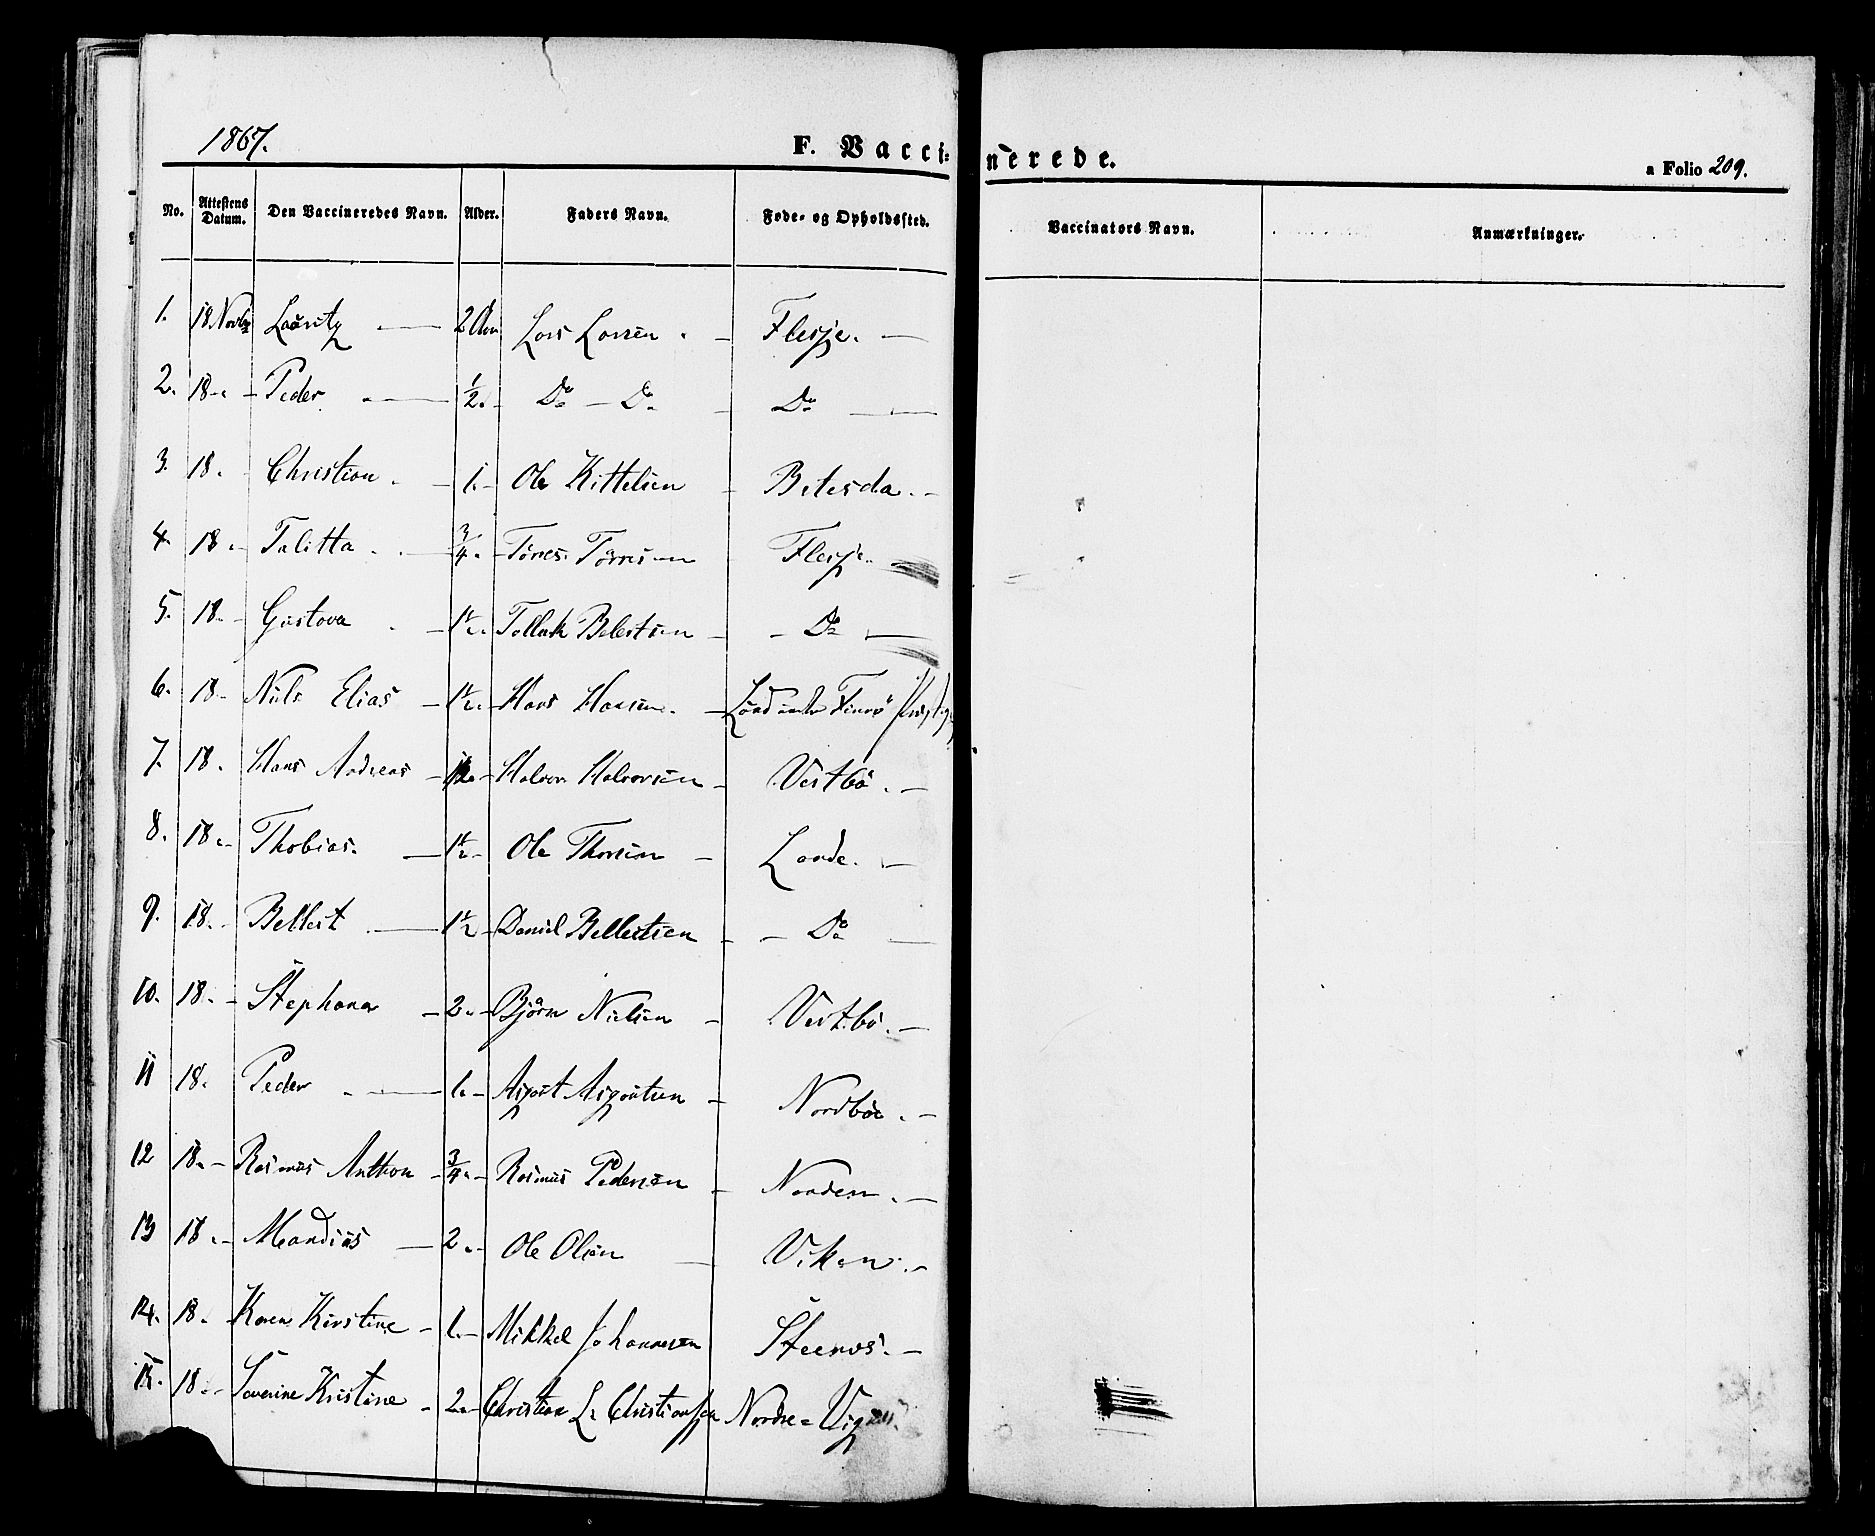 1867.
F. Vaccinerede.
a Folio 209.
No. Attestens Datum. Den Vaccineredes Navn. Alder. Faders Navn. Føde- og Opholdssted. Vaccinators Navn. Anmærkninger.
1. 18 Novbr Lauritz — 2 Aar Lars Larsen. — Flesje. —
2. 18 - " - Peder — 1/2. - Do — Do — Do —
3. 18. - Christian. — 1. - Ole Kittelsen — Betesda. —
4. 18 - Talitta. — 3/4. - Tønes Tønnesen Flesje.
5. 18. - Gustava — 1 1/2. - Tollak Belestsen — - Do —
6. 18 - Niels Elias — 1 1/2. - Hans Hansen. — Finnø
7. 18. Hans Andreas — - Halvor Halvorsen — Vestbø. —
8. 18. - Thobias. — 1 1/2 - Ole Thorsen — Laade. —
9. 18. - Bellest — 1 1/2 - Daniel Bellestsen — — Do —
10. 18. - Stephana — 2. - Bjørn Nielsen — Vestbø. —
11 18. Peder — 1. - Asgaut Asgautsen — Nordbøe. —
12 18. - Rasmus Anthon — 3/4. - Rasmus Pedersen — Nordem. —
13 18. - Mandius — 2. - Ole Olsen — Viken. —
14. 18. Karen Kirstine — 1. - Mikkel Johannesen Steenes. —
15. 18. - Severine Kristine — 2. - Christian L. Christiansen Nordre = Vigen.